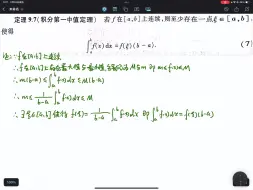 定理 9.7(积分第一中值定理) 若 f 在 [a, b] 上连续, 则至少存在一点 ξ ∈ [a, b],
使得
∫_a^b f(x)dx = f(ξ)(b - a). (7)
证: ∵ f在[a,b]上连续
∴ f在[a,b]上存在最大值与最小值, M与m 即 m≤f(x)≤M
∴ m(b-a) ≤ ∫_a^b f(x)dx ≤ M(b-a)
∴ m ≤ 1/(b-a) ∫_a^b f(x)dx ≤ M
∴ ∃ ξ∈[a,b] 使得 f(ξ) = 1/(b-a) ∫_a^b f(x)dx 即 ∫_a^b f(x)dx = f(ξ)(b-a)
100%